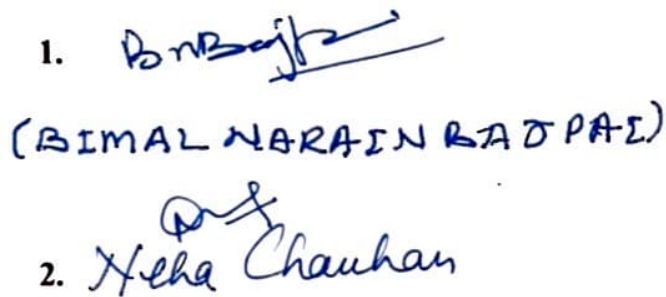 1. BnBajp
(BIMAL NARAIN BAJPAI)
2. Neha Chauhan